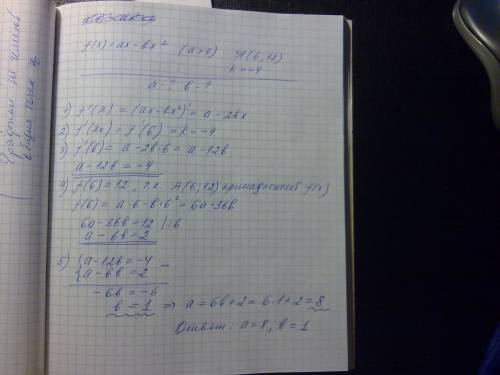 f(x) = ax - bx² (a > 0) A(6; 12)
k = -4
a - ? b - ?
1) f'(x) = (ax - bx²)' = a - 2bx
2) f'(x₀) = f'(6) = k = -4
3) f'(6) = a - 2b·6 = a - 12b
a - 12b = -4
4) f(6) = 12, т.к. A(6; 12) принадлежит f(x)
f(6) = a·6 - b·6² = 6a - 36b
6a - 36b = 12 | :6
a - 6b = 2
5) { a - 12b = -4
a - 6b = 2 -
-6b = -6
b = 1 ⇒ a = 6b + 2 = 6·1 + 2 = 8
Ответ: a = 8, b = 1
общих точек